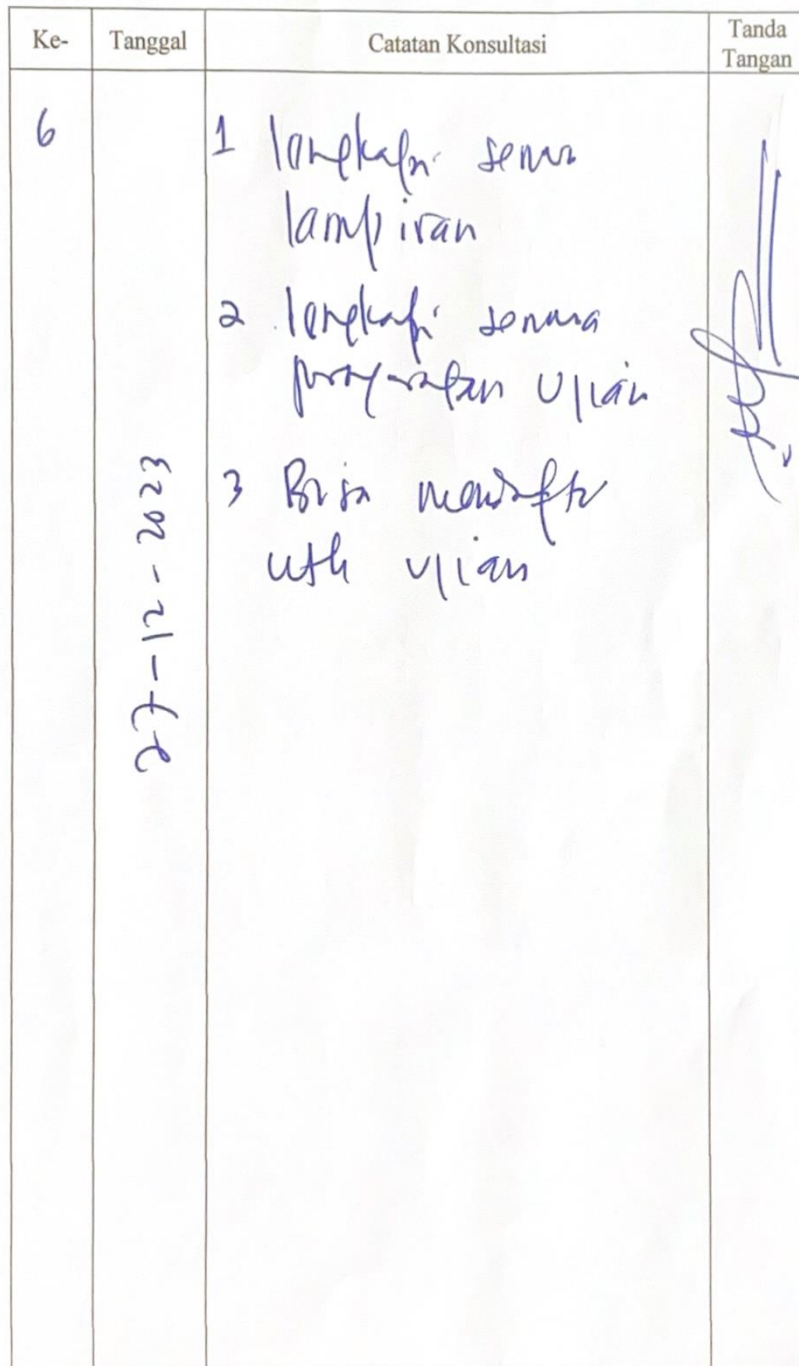 Ke- Tanggal Catatan Konsultasi Tanda
Tangan
6
27-12-2023
1 lengkapi semua
lampiran
2 lengkapi semua
persyaratan ujian
3 Bisa mendaftar
utk ujian